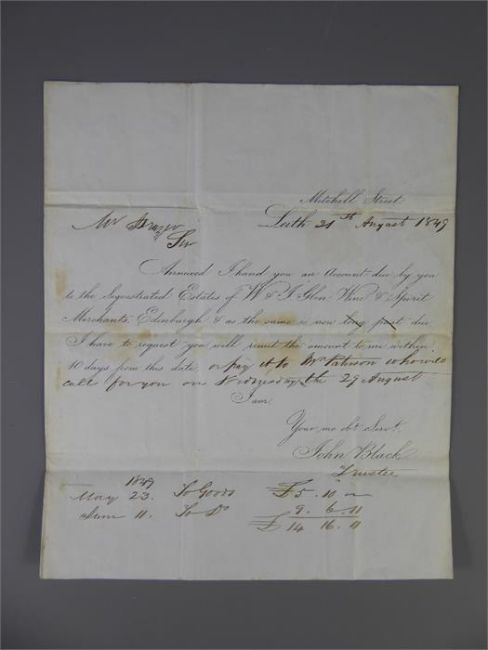 Mitchell Street
Leith 21th August 1849
Mr
Sir
Annexed I hand you an Account due by you
to the Sequestrated Estates of W & J Glen Wine & Spirit
Merchants, Edinburgh & as the same is now long past due
I have to request you will remit the amount to me within
10 days from this date or pay it to Mr who will
call for you on Wednesday the 29 August
I am
Your mo obt Servt
John Black
Trustee
1849
May 23. To Goods £5. 10 "
June 11. To Do 9. 6. 11
£ 14 16. 11